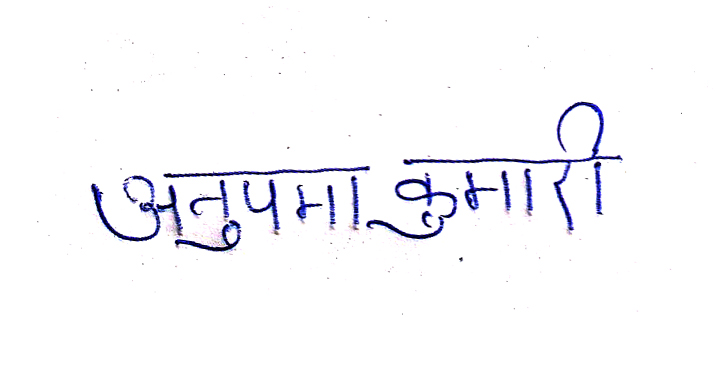 अनुपमा कुमारी